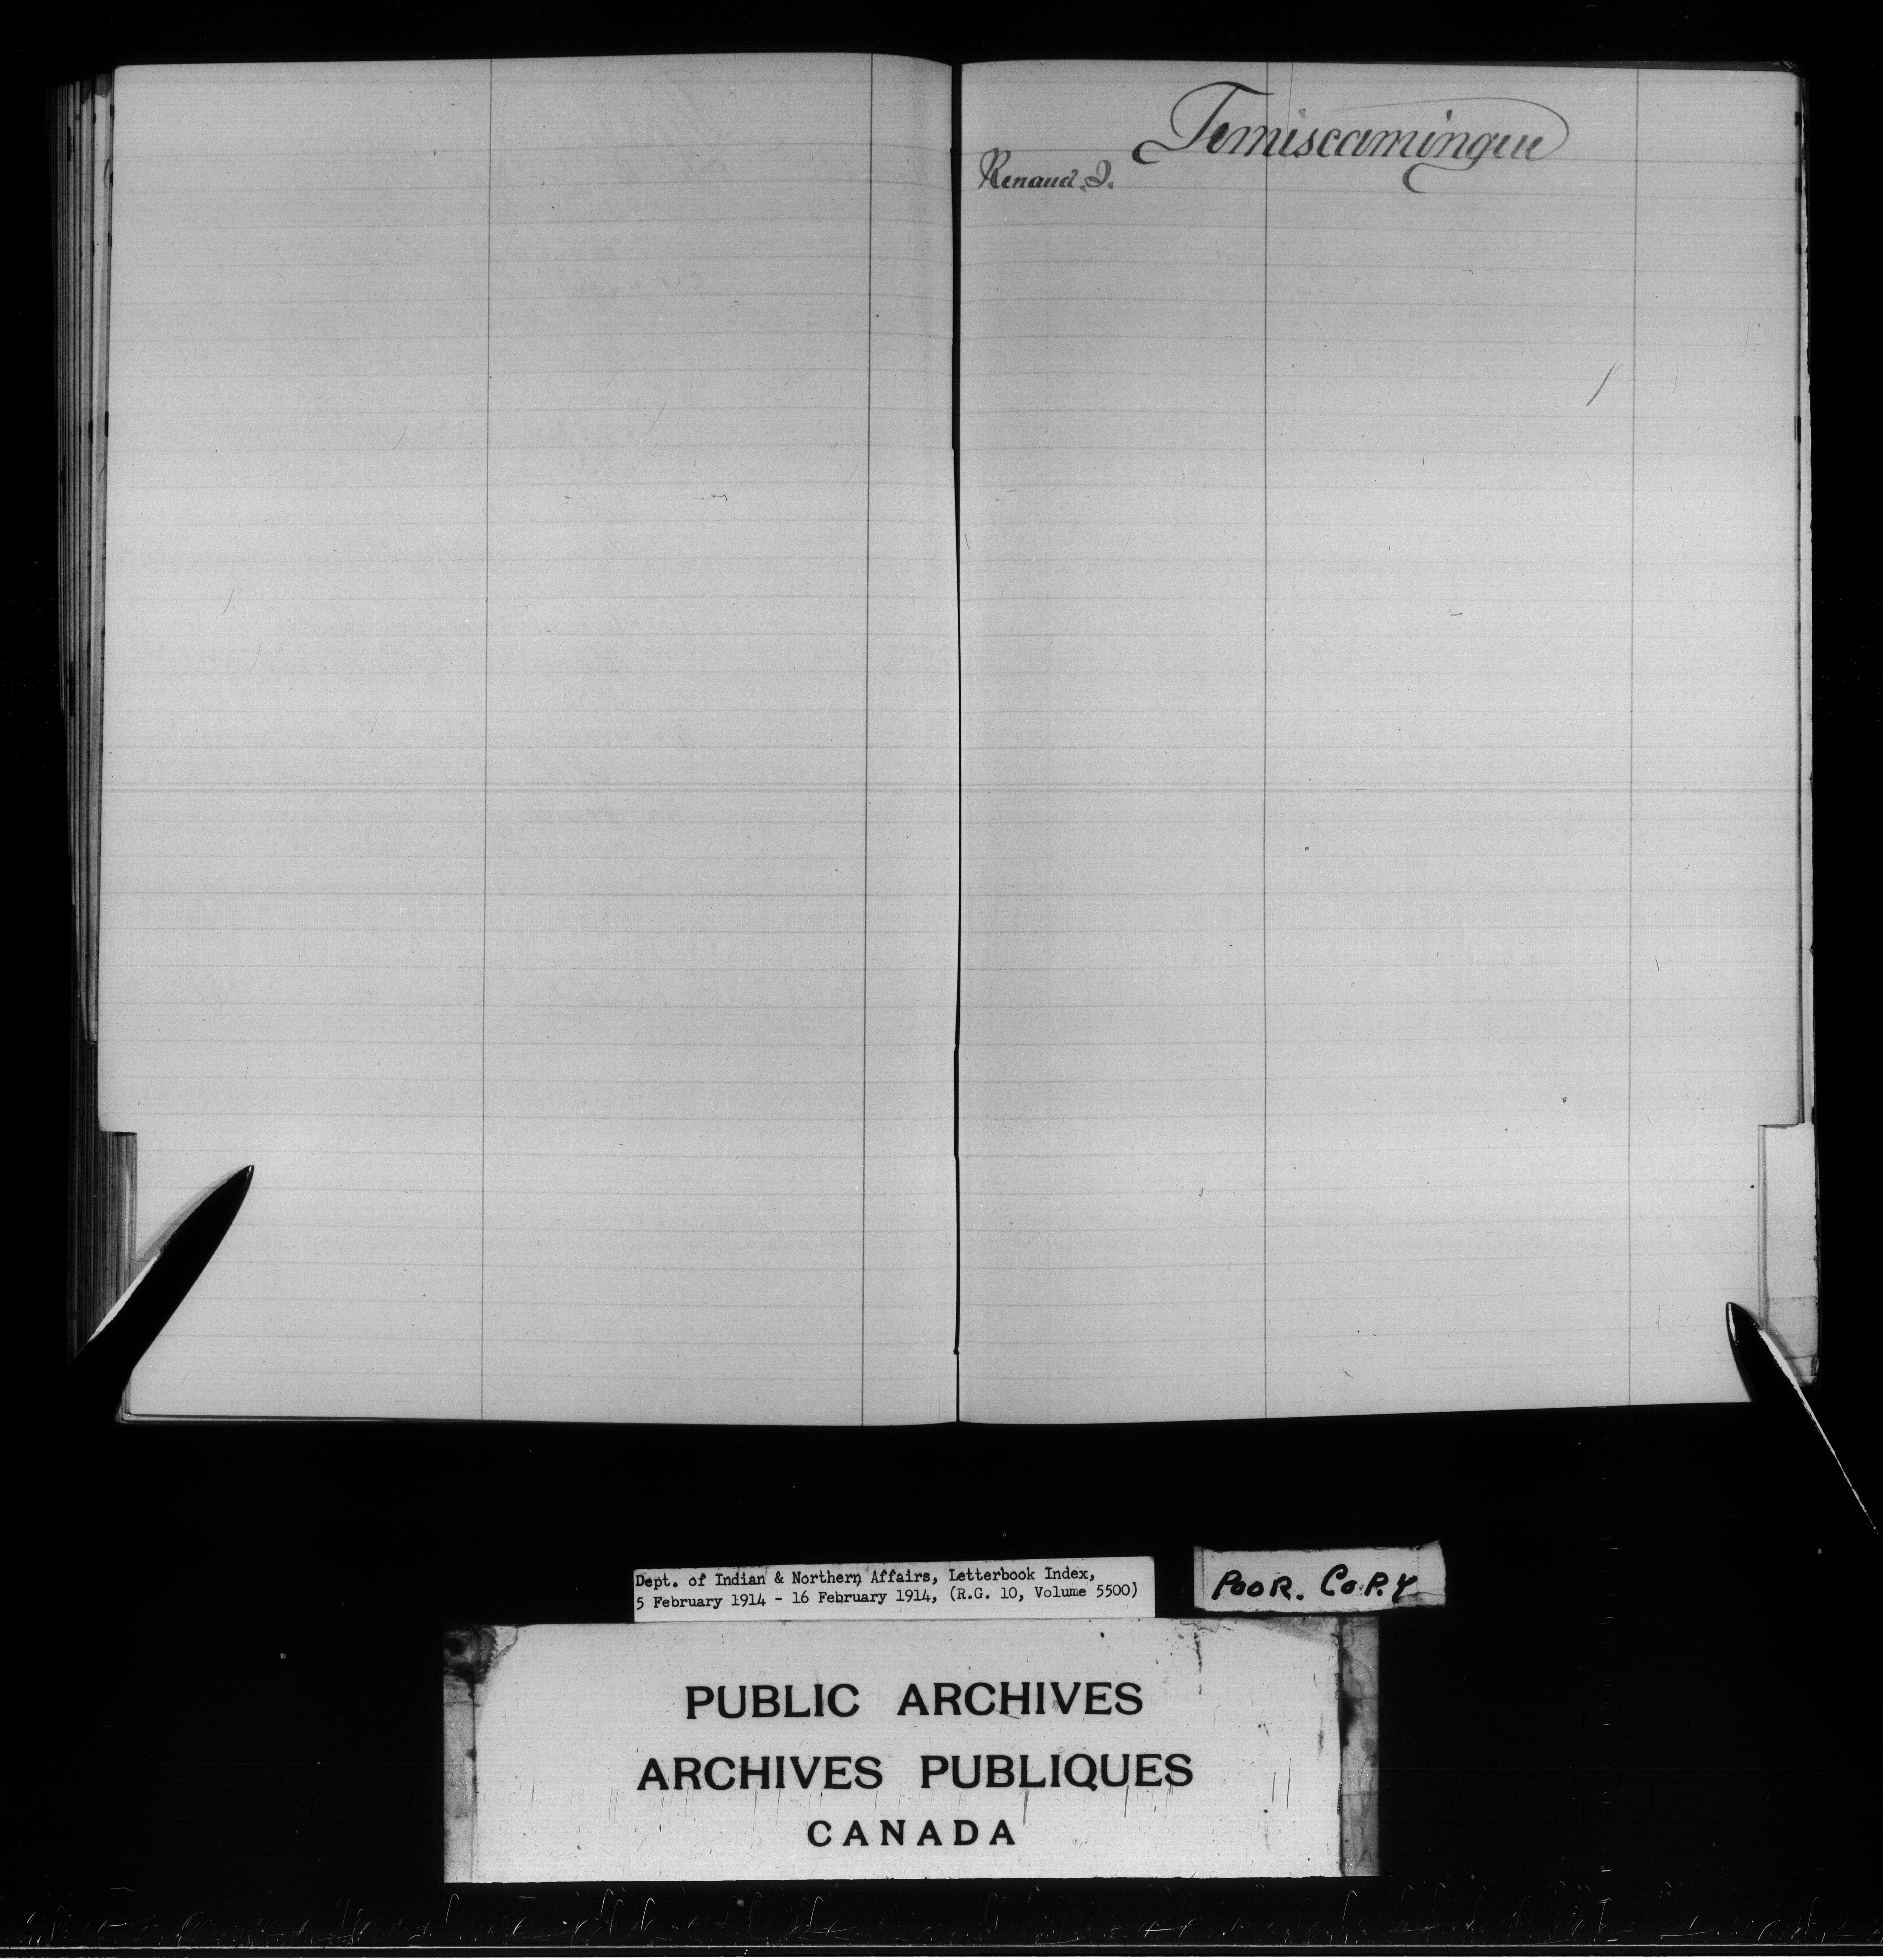 Temiscamingue
Renaud, I.
Dept. of Indian & Northern Affairs, Letterbook Index,
5 February 1914 - 16 February 1914, (R.G. 10, Volume 5500)
POOR. COPY
PUBLIC ARCHIVES
ARCHIVES PUBLIQUES
CANADA